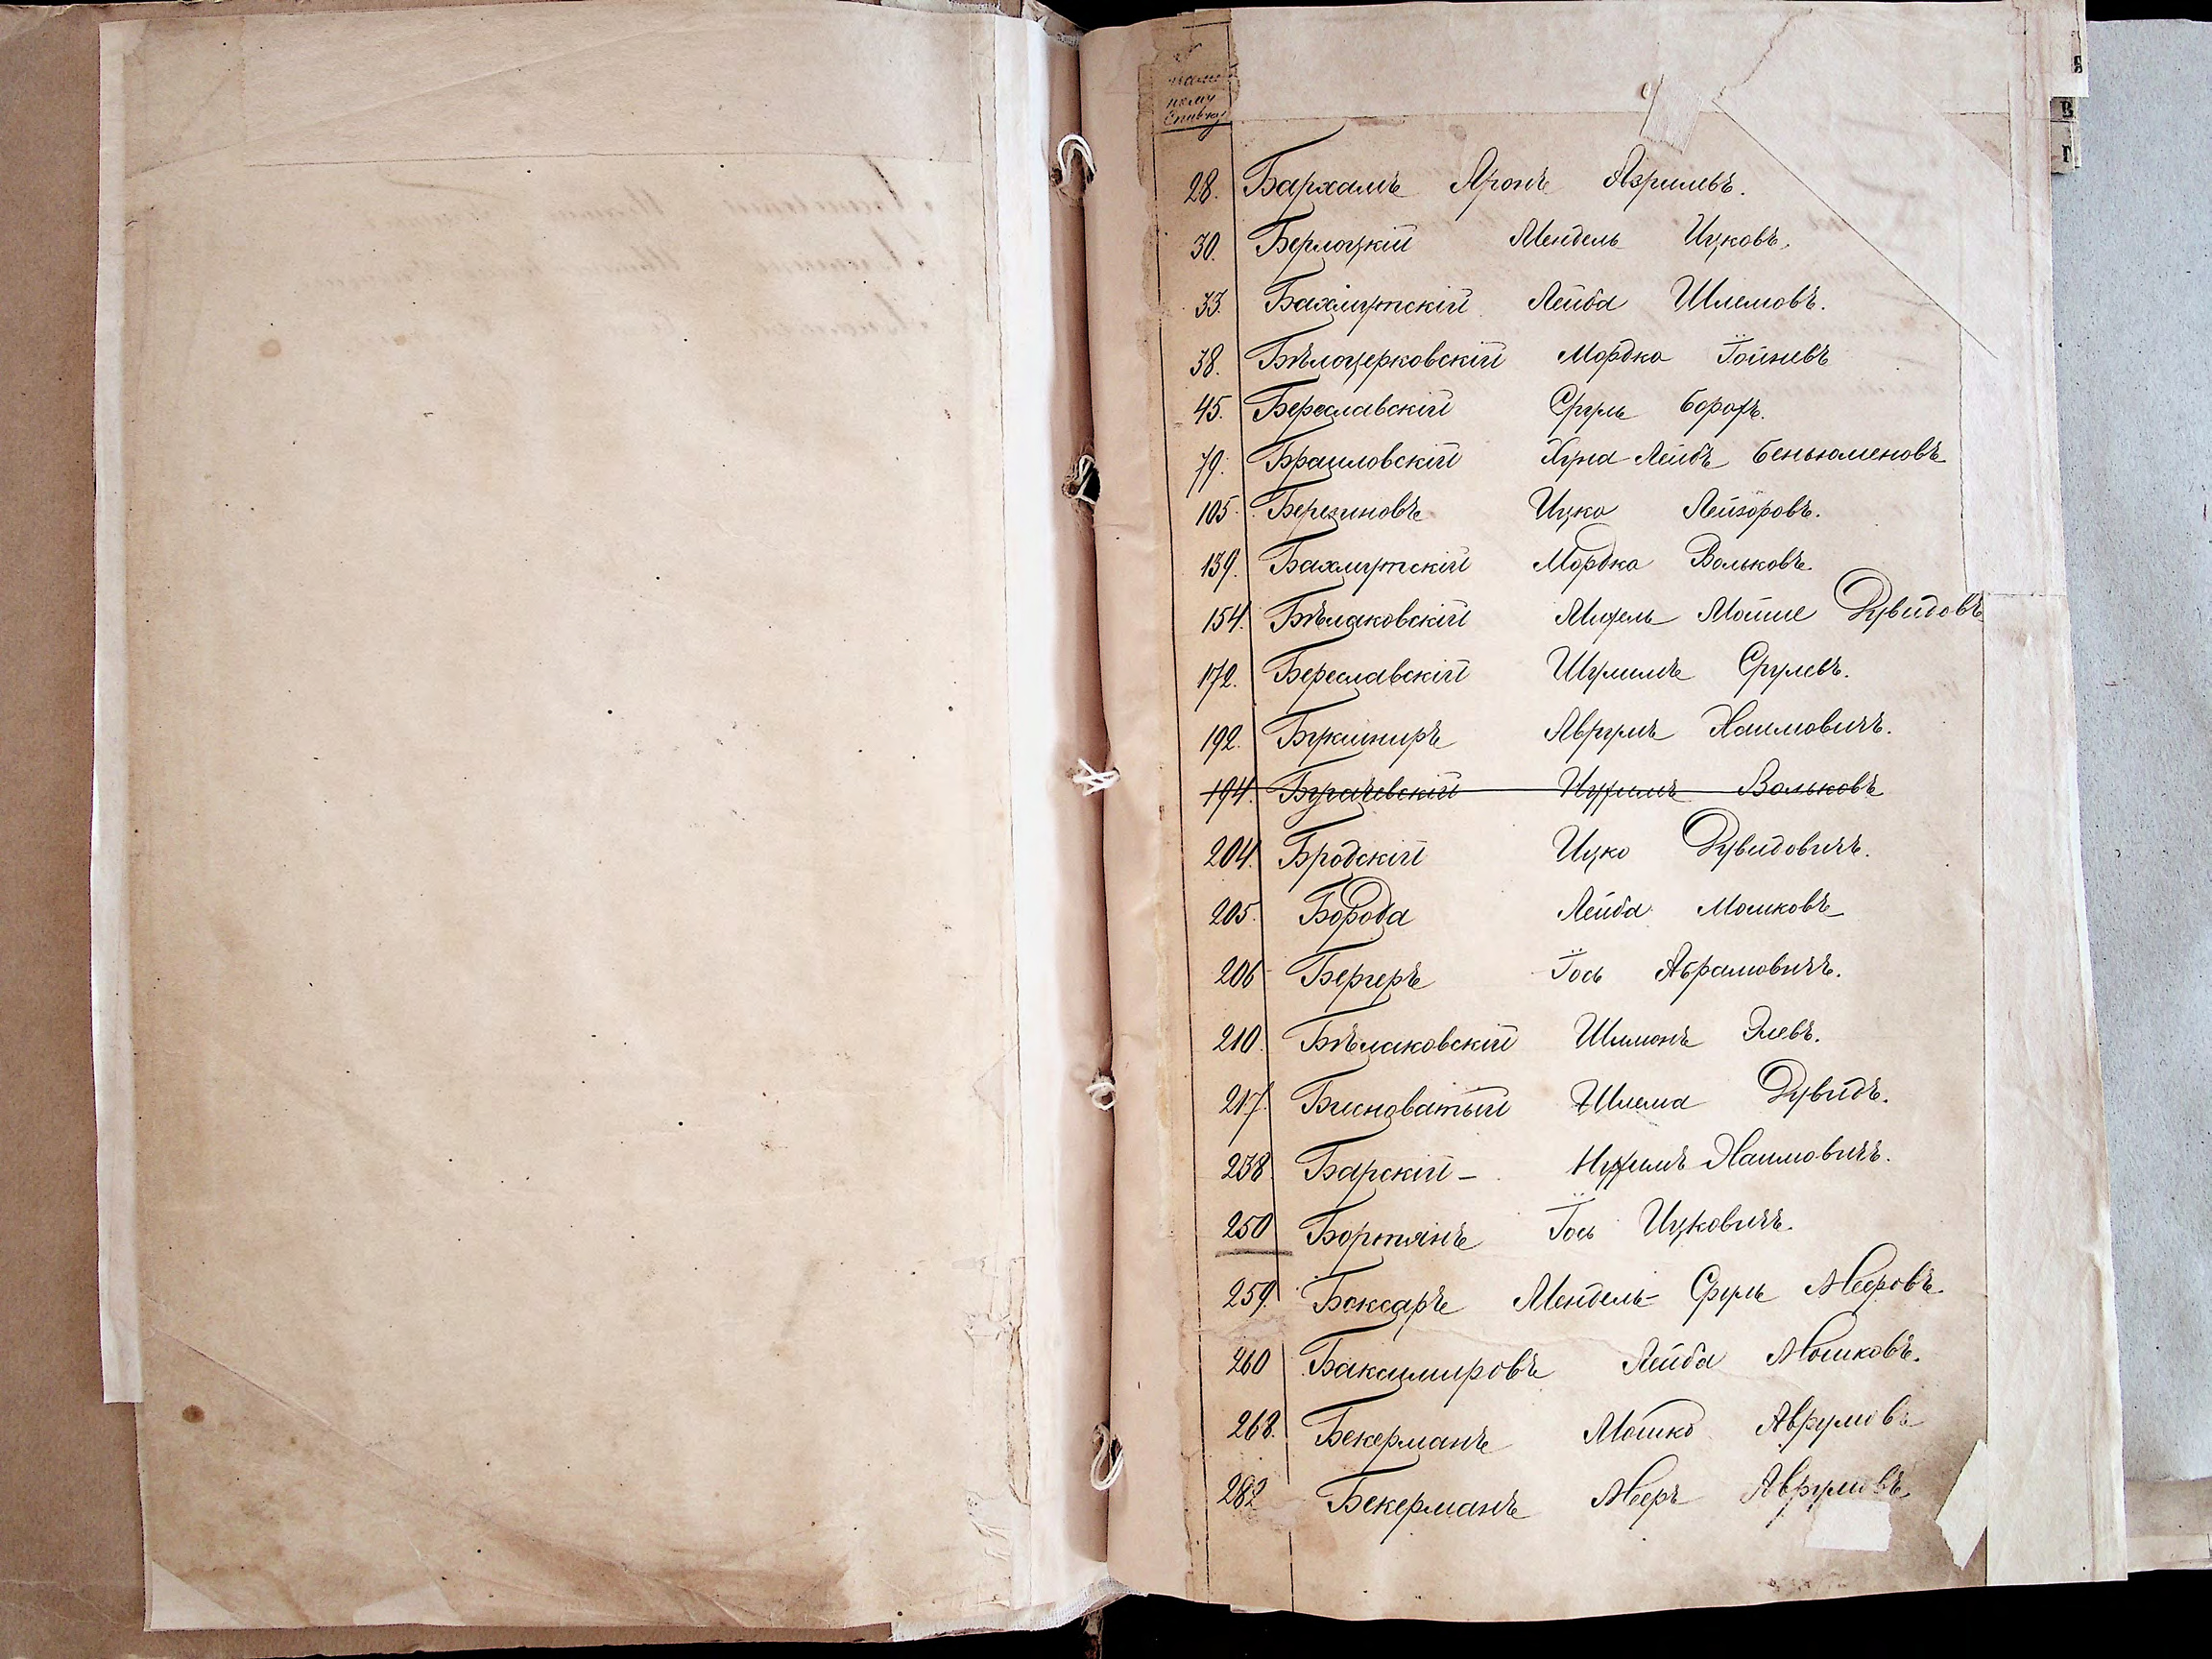 ному
Списку
28. Бархамъ Аронъ Азрилевъ.
30. Берлоцкій Мендель Ицковъ.
33. Бахмутскій Лейба Шлемовъ.
38. Бѣлоцерковскій Мордко Іойневъ
45. Береславскій Сруль Борох.
79. Браиловскій Хуна-Лейбъ Беньюменовъ
105. Березиновъ Ицко Лейзоровъ.
139. Бахмутскій Мордко Вольковъ.
154. Бѣлаковскій Михель Мойше Дувидовъ
172. Береславскій Шулимъ Срулевъ.
192. Букшпиръ Аврумъ Хаимовичъ.
194. Бурачевскій Нухимъ Вольковъ
204. Бродскій Ицко Дувидовичъ.
205. Борода Лейба Мошковъ
206 Бергеръ Іось Абрамовичъ.
210. Бѣлаковскій Шимонъ Элевъ.
217. Бисноватый Шлема Дувидъ.
238. Барскій - Нухимъ Хаимовичъ.
250 Бортянъ Іось Ицковичъ.
259. Боксаръ Мендель-Сруль Мееровъ.
260 Бакцимировъ Лейба Мошковъ.
268. Бекерманъ Мошко Аврумовъ
282 Бекерманъ Мееръ Аврумовъ
В
Г